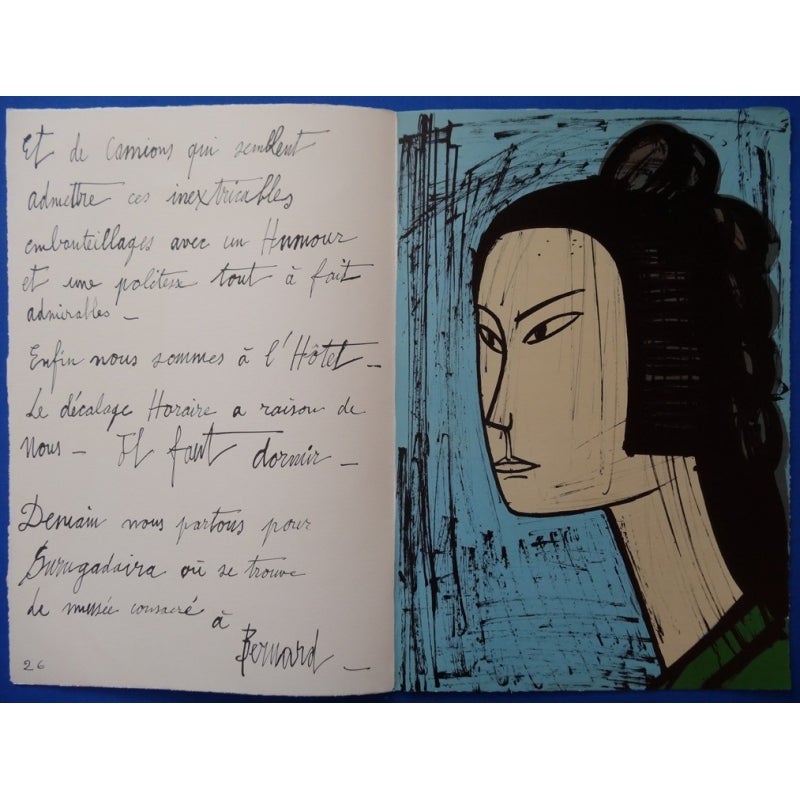 Et de Camions qui semblent
admettre ces inextricables
embouteillages avec un Humour
et une politesse tout à fait
admirables –
Enfin nous sommes à l'Hôtel –
Le décalage Horaire a raison de
Nous – Il faut dormir –
Demain nous partons pour
Surugadaira où se trouve
Le musée consacré à
Bernard –
26